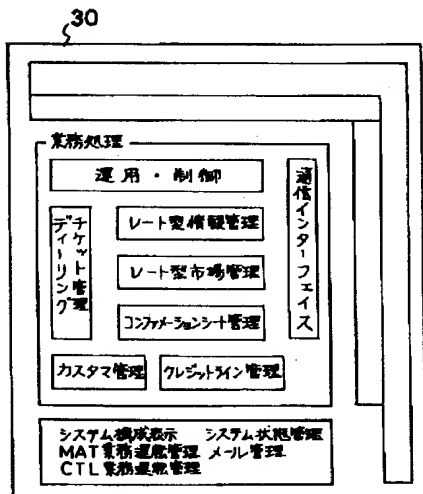 30
業務処理
運用・制御
通信インターフェイス
ディーリング
チケット管理
レート型情報管理
レート型市場管理
コンファメーションシート管理
カスタマ管理
クレジットライン管理
システム構成表示 システム状態管理
MAT業務運転管理 メール管理
CTL業務運転管理